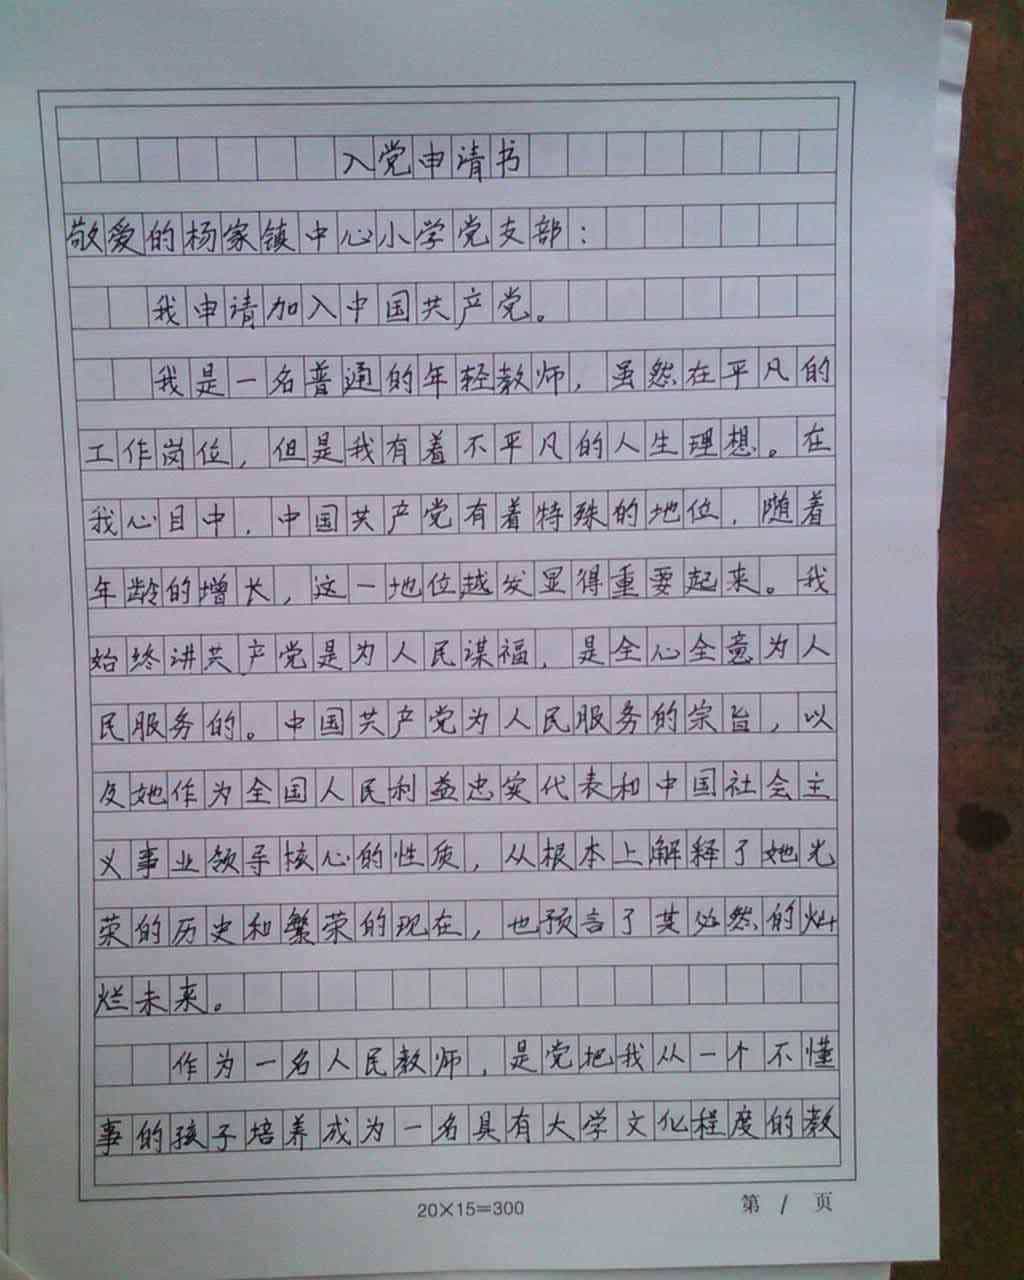 入党申请书
敬爱的杨家镇中心小学党支部：
我申请加入中国共产党。
我是一名普通的年轻教师，虽然在平凡的
工作岗位，但是我有着不平凡的人生理想。在
我心目中，中国共产党有着特殊的地位，随着
年龄的增长，这一地位越发显得重要起来。我
始终讲共产党是为人民谋福，是全心全意为人
民服务的。中国共产党为人民服务的宗旨，以
及她作为全国人民利益忠实代表和中国社会主
义事业领导核心的性质，从根本上解释了她光
荣的历史和繁荣的现在，也预言了其必然的灿
烂未来。
作为一名人民教师，是党把我从一个不懂
事的孩子培养成为一名具有大学文化程度的教
20×15=300
第 1 页